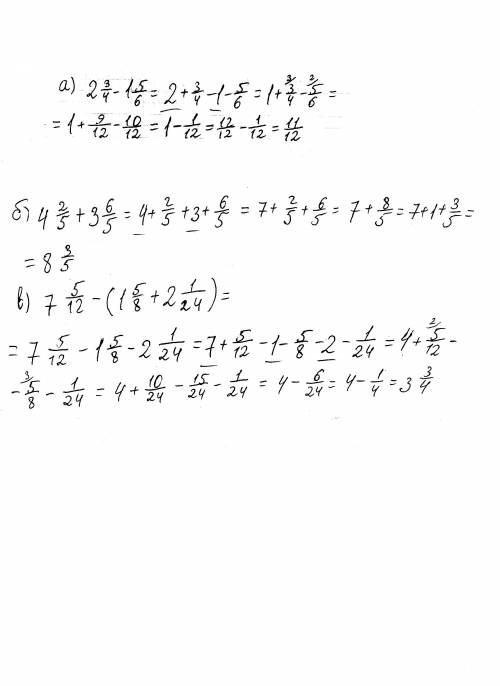 а) 2 3/4 - 1 5/6 = 2 + 3/4 - 1 - 5/6 = 1 + ³3/4 - ²5/6 =
= 1 + 9/12 - 10/12 = 1 - 1/12 = 12/12 - 1/12 = 11/12
б) 4 2/5 + 3 6/5 = 4 + 2/5 + 3 + 6/5 = 7 + 2/5 + 6/5 = 7 + 8/5 = 7 + 1 + 3/5 =
= 8 3/5
в) 7 5/12 - (1 5/8 + 2 1/24) =
= 7 5/12 - 1 5/8 - 2 1/24 = 7 + 5/12 - 1 - 5/8 - 2 - 1/24 = 4 + ²5/12 -
- ³5/8 - 1/24 = 4 + 10/24 - 15/24 - 1/24 = 4 - 6/24 = 4 - 1/4 = 3 3/4